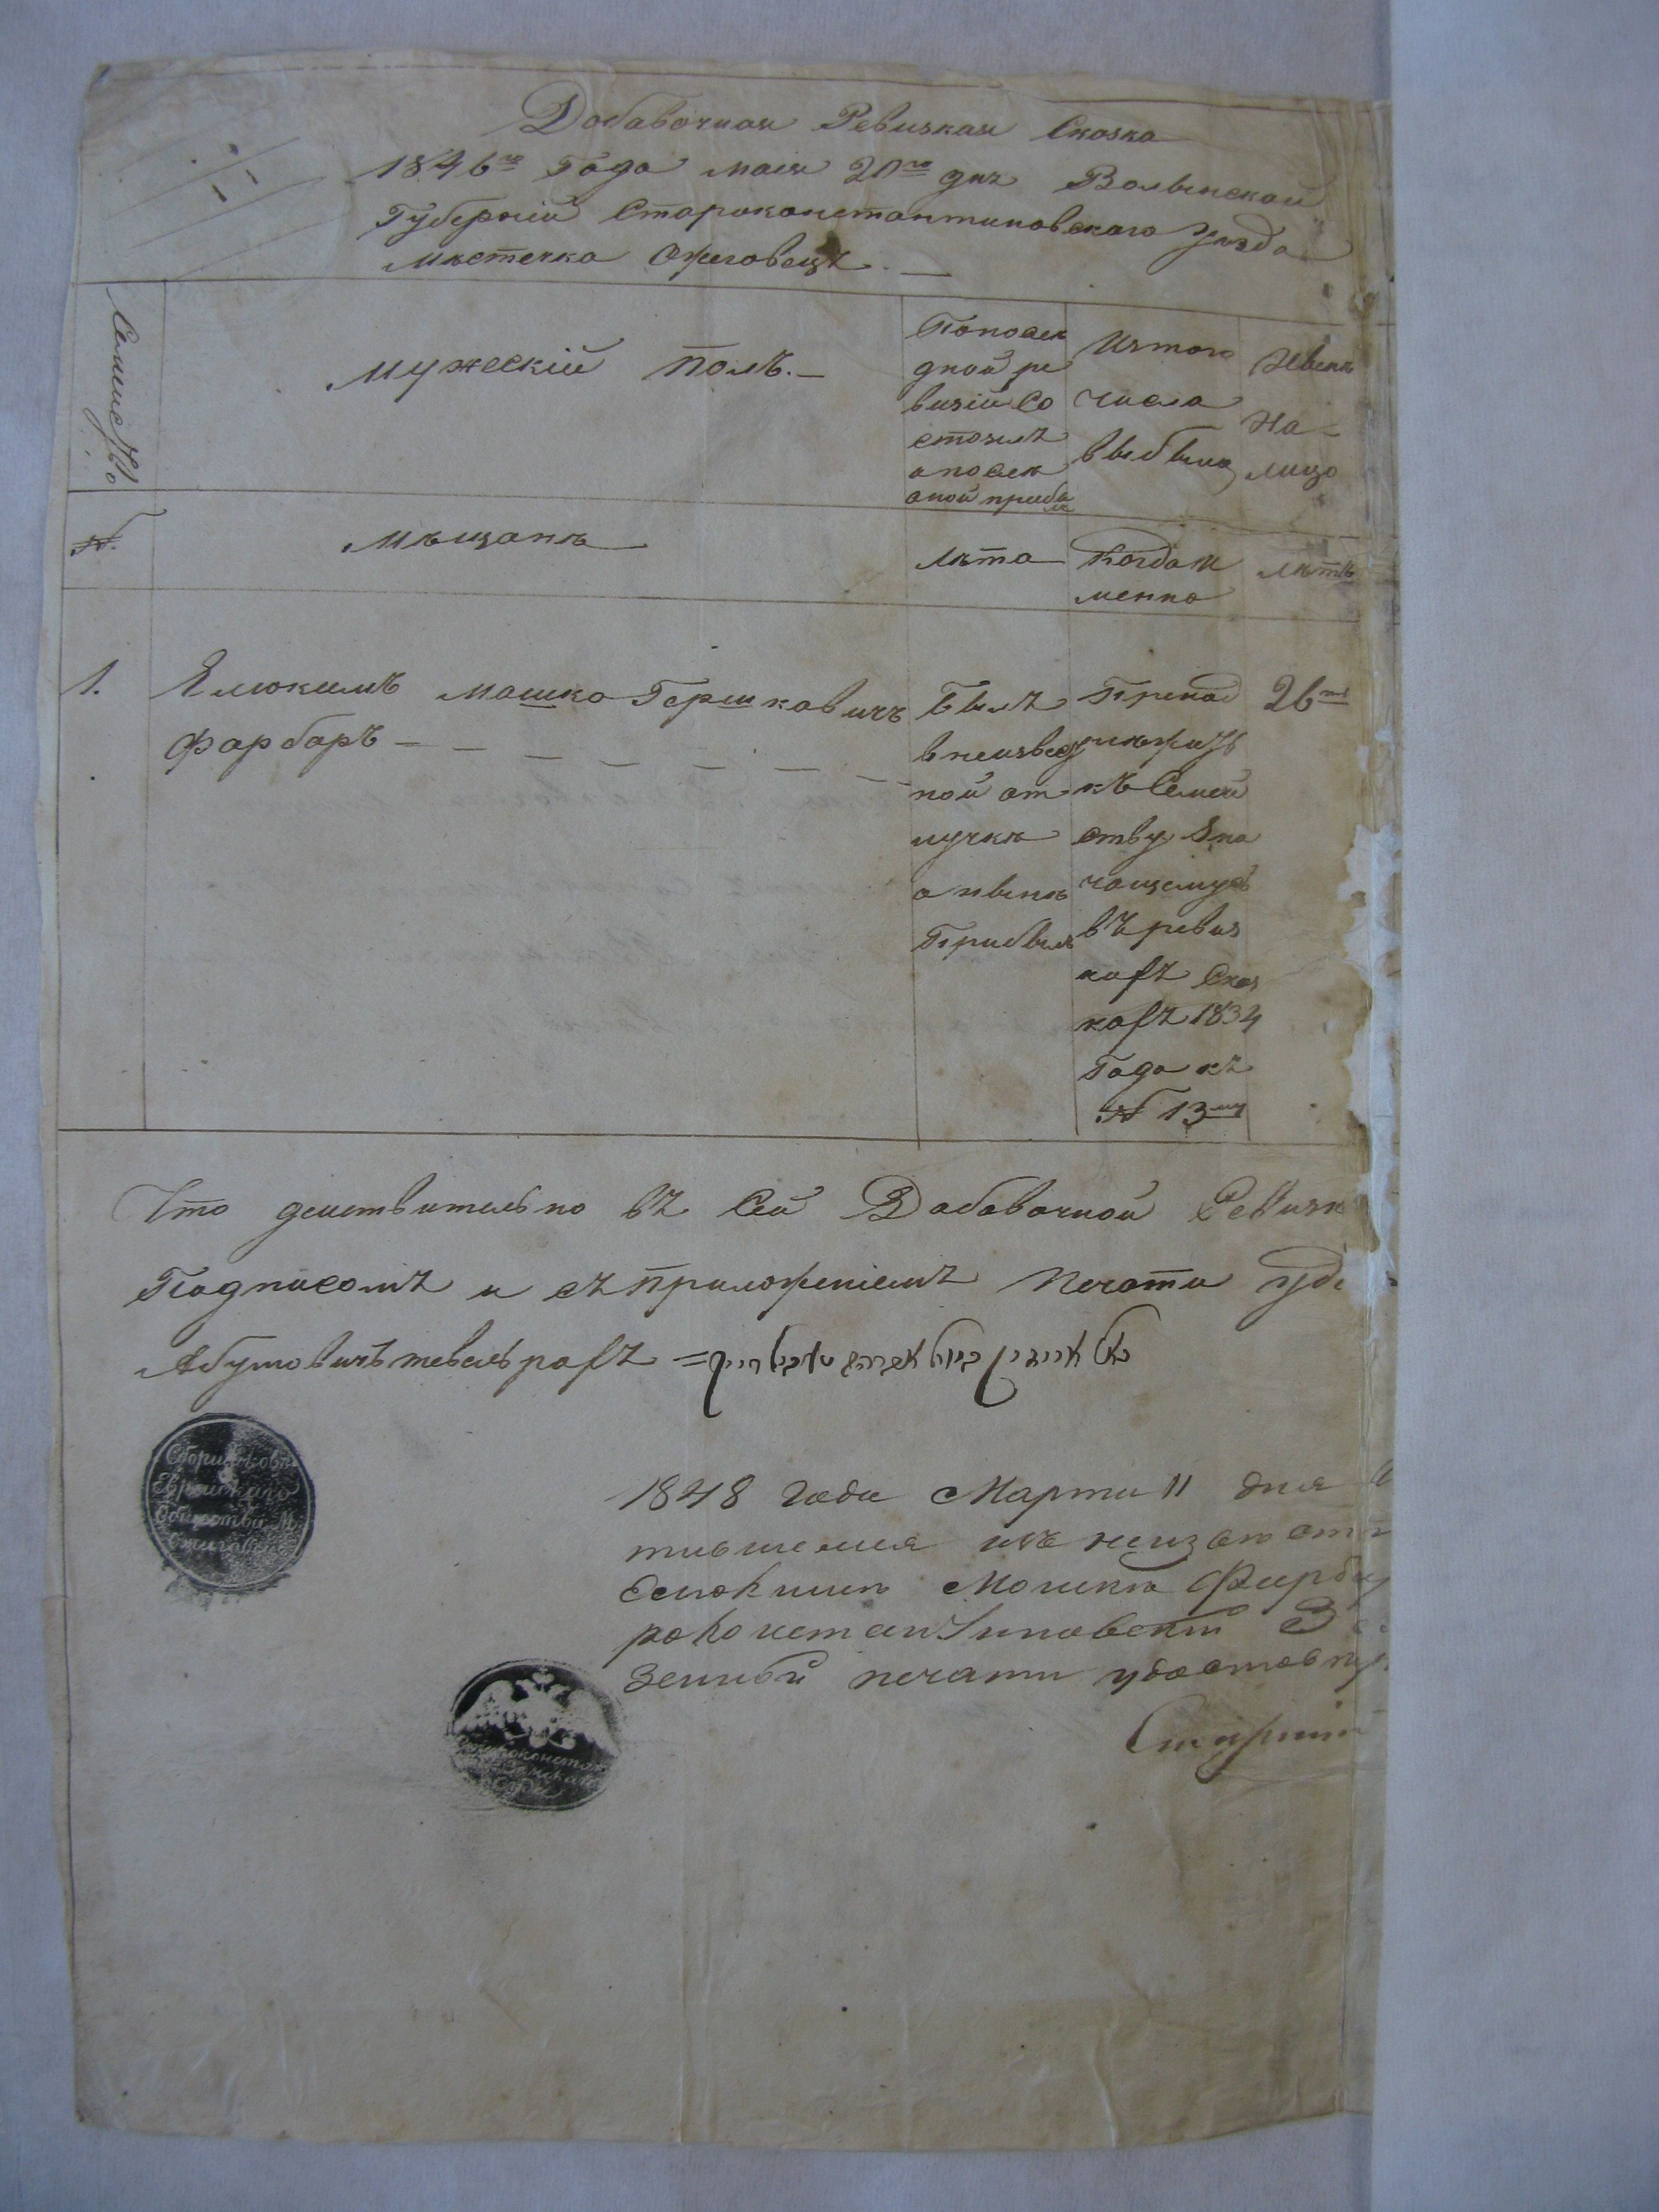 Добавочная Ревизкая Сказка
1846го Года мая 20го дня Волынской
Губерніи Староконстантиновского уезда
мѣстечка Ожеговецъ. —
Семейство
мужескій полъ. —
Попослѣ
дной ре
визіи Со
стоялъ
и послѣ
оной прибы
Изтого
числа
выбыло
Нынѣ
На-
лицо
№.
мѣщанѣ
лѣта
Когда И
менно
лѣтъ
1. Элюкимъ Мошко Гершковичъ
Фарборъ —
Былъ
в неизвед
ной от
лучкѣ
а нынѣ
Прибылъ
Принад
лѣжитъ
къ Семей
ству Зна
чащемуся
въ ревиз
кахъ Сказ
кахъ 1834
Года къ
№ 13му
26ть
Что деиствительно въ Сей Добавочной Ревизк
Подписомъ и съ приложеніемъ печати удо
Абумовичъ
Сборщиковъ
Еврейского
Общества М.
Ожиговец
1848 года Марта 11 дня
из неизв от
Мошка Фарба
роконстантиновский З
земной печати удостов
Старший
Староконстан
Земскаго
Суда